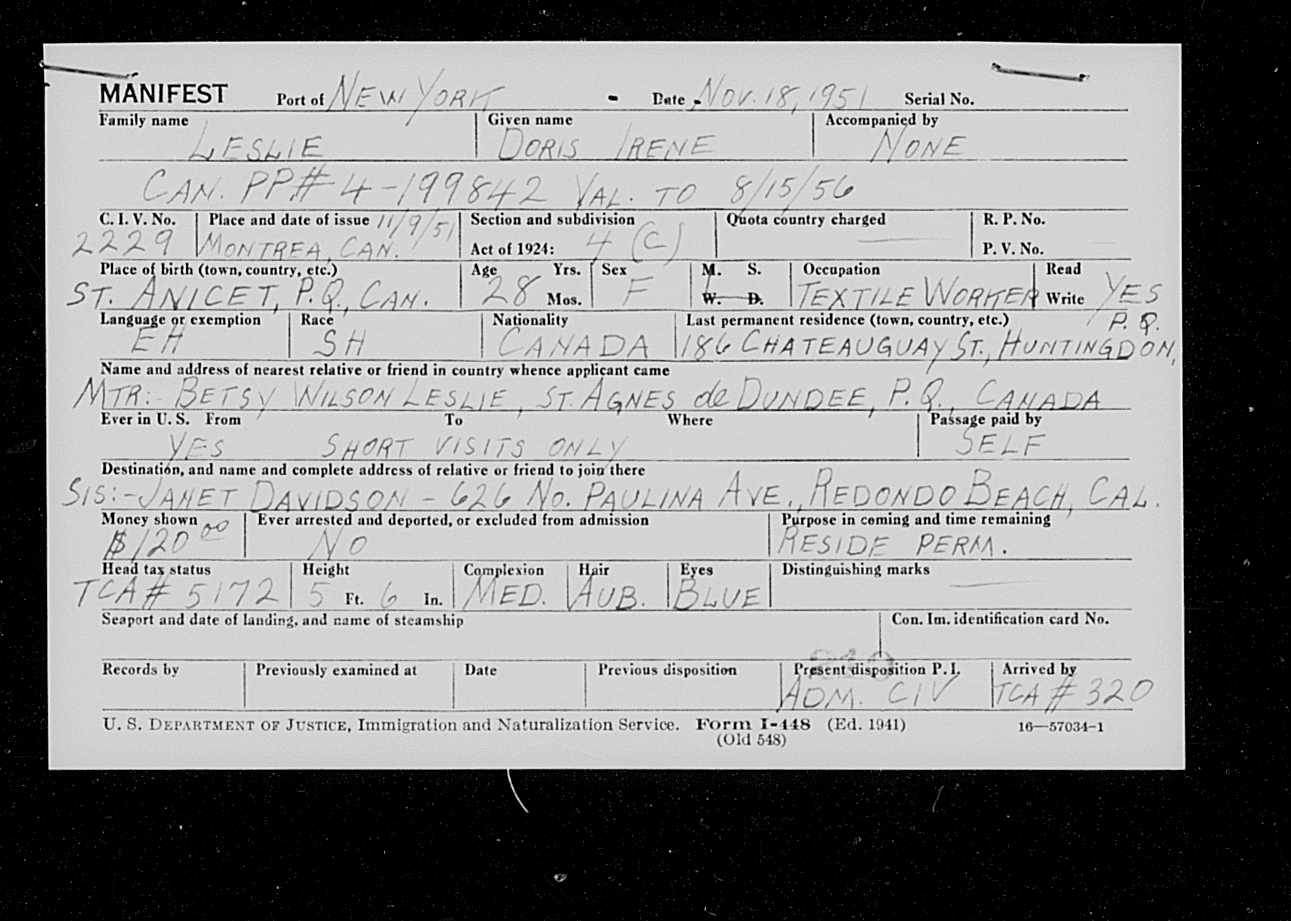 MANIFEST Port of NEW YORK - Date NOV. 18, 1951 Serial No.
Family name Given name Accompanied by
LESLIE DORIS IRENE NONE
CAN. PP# 4-199842 VAL. TO 8/15/56
C. I. V. No. Place and date of issue 11/9/51 Section and subdivision Quota country charged R. P. No.
2229 MONTREA, CAN. Act of 1924: 4 (C) P. V. No.
Place of birth (town, country, etc.) Age Yrs. Sex M. S. Occupation Read
ST. ANICET, P.Q., CAN. 28 Mos. F W. D. TEXTILE WORKER Write YES
Language or exemption Race Nationality Last permanent residence (town, country, etc.) P.Q.
EH SH CANADA 186 CHATEAUGUAY ST., HUNTINGDON,
Name and address of nearest relative or friend in country whence applicant came
MTR:- BETSY WILSON LESLIE, ST. AGNES de DUNDEE, P.Q., CANADA
Ever in U. S. From To Where Passage paid by
YES SHORT VISITS ONLY SELF
Destination, and name and complete address of relative or friend to join there
SIS:- JANET DAVIDSON - 626 NO. PAULINA AVE., REDONDO BEACH, CAL.
Money shown Ever arrested and deported, or excluded from admission Purpose in coming and time remaining
$120 00 NO RESIDE PERM.
Head tax status Height Complexion Hair Eyes Distinguishing marks
TCA# 5172 5 Ft. 6 In. MED. AUB. BLUE
Seaport and date of landing, and name of steamship Con. Im. identification card No.
Records by Previously examined at Date Previous disposition Present disposition P. I. Arrived by
ADM. CIV TCA # 320
U. S. DEPARTMENT OF JUSTICE, Immigration and Naturalization Service. Form I-448 (Ed. 1941) 16—57034-1
(Old 548)